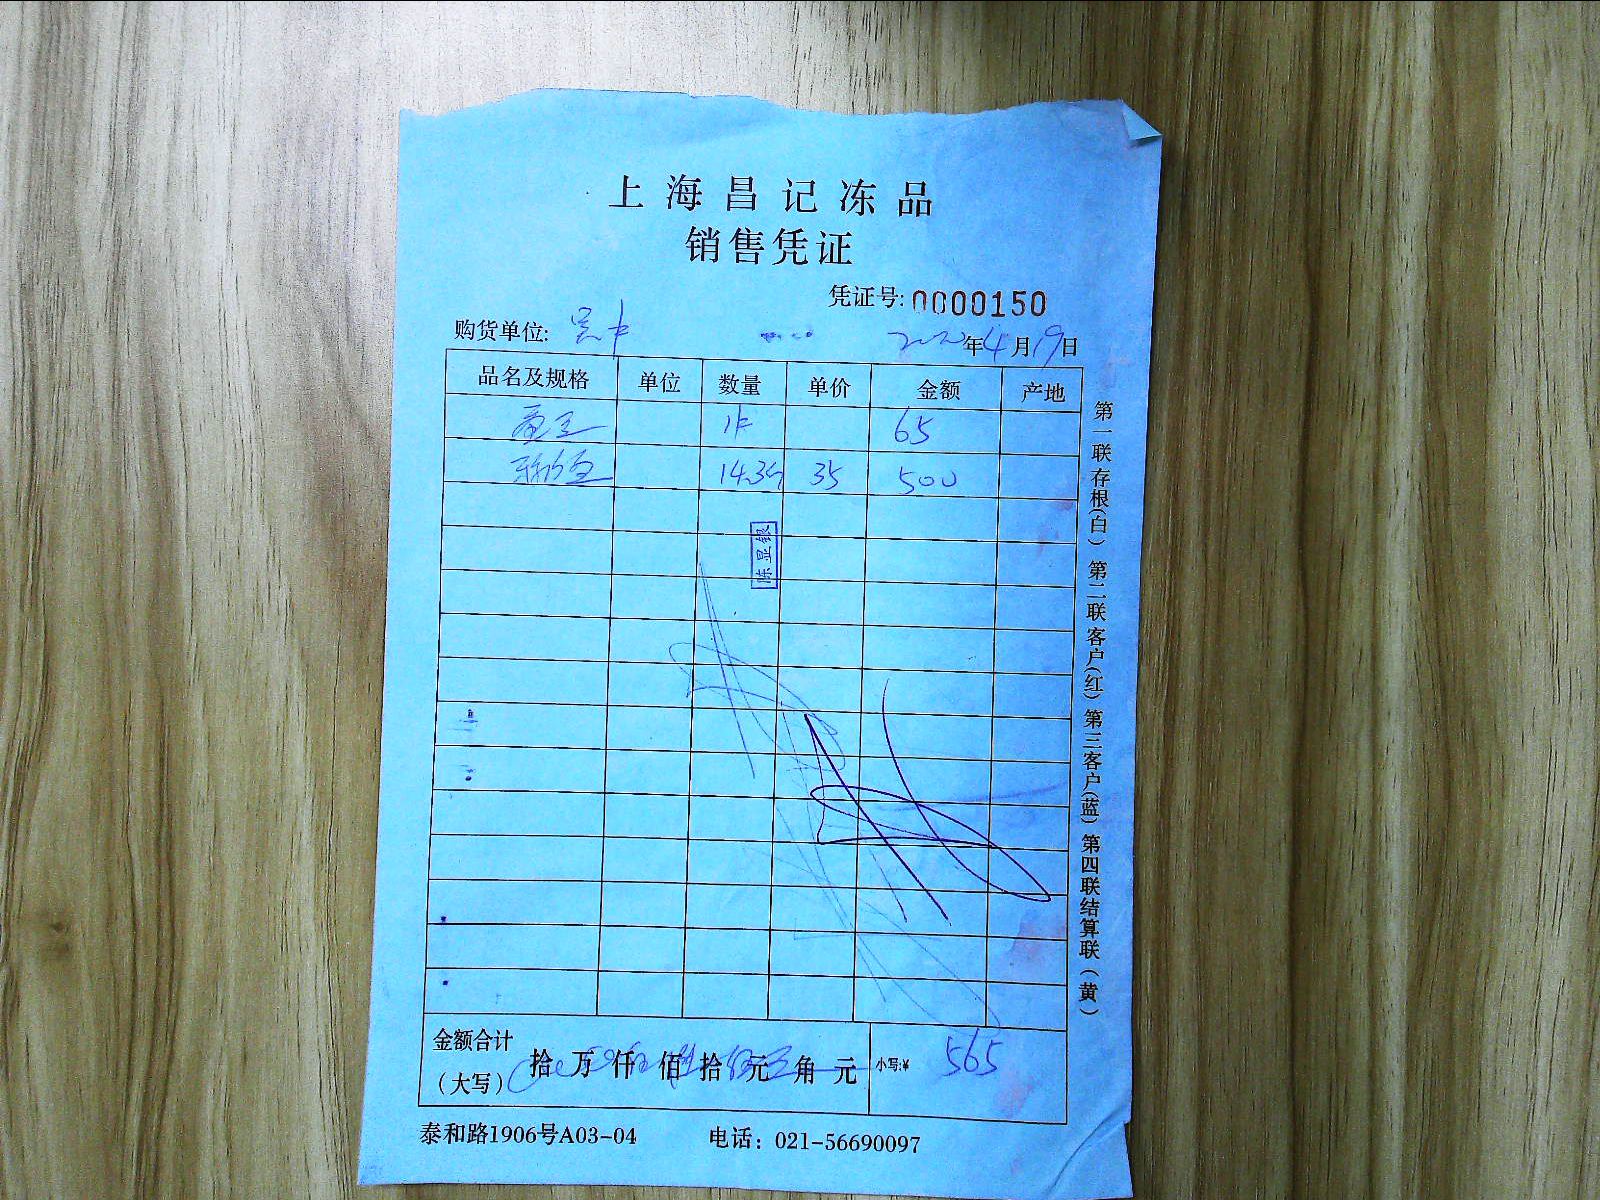 上海昌记冻品
销售凭证
凭证号:0000150
购货单位: 2020年4月19日
品名及规格 单位 数量 单价 金额 产地
1件 65
14.3 35 500
陈显银
金额合计
(大写) 拾 万 仟 佰 拾 元 角 元 小写:¥ 565
泰和路1906号A03-04 电话：021-56690097
第一联存根(白) 第二联客户(红) 第三客户(蓝) 第四联结算联(黄)